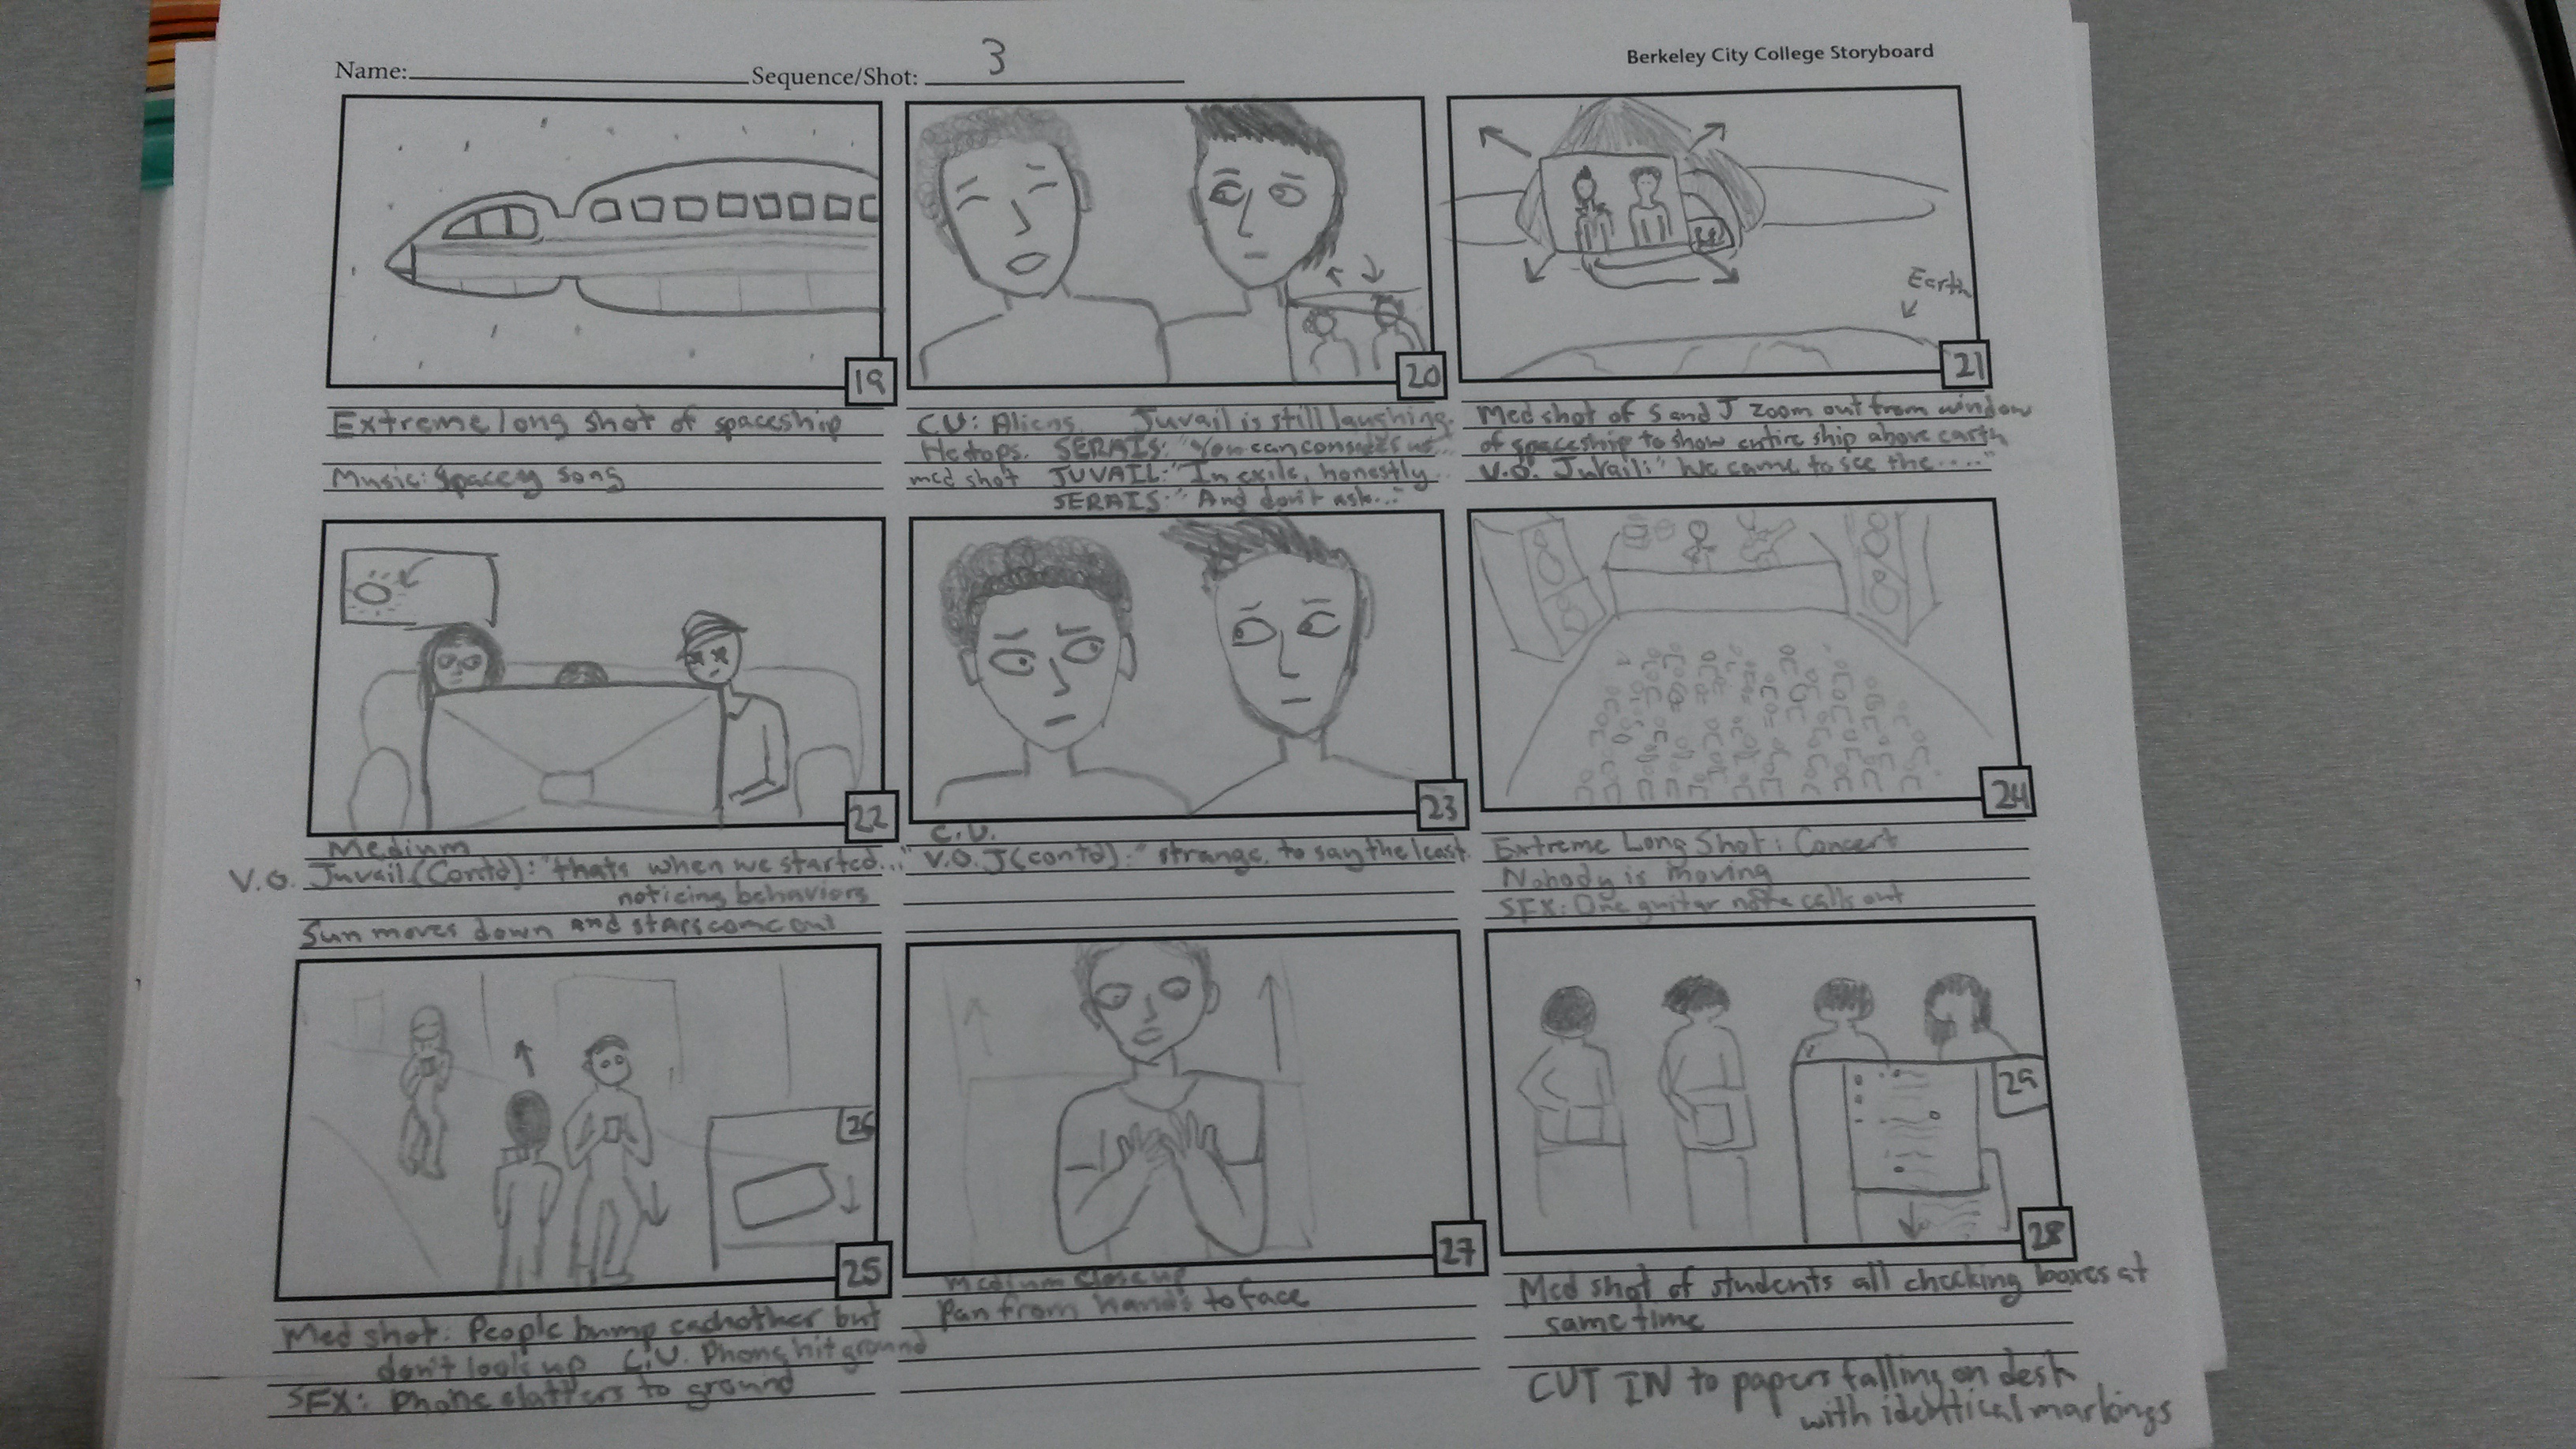 Name: Sequence/Shot: 3
Berkeley City College Storyboard
19
20
Earth
21
Extreme long shot of spaceship
Music: Spacey song
C.U: Aliens. Juvail is still laughing.
He stops. SERAIS: "You can consider us...
med shot JUVAIL: "In exile, honestly
SERAIS: "And don't ask..."
Med shot of S and J zoom out from window
of spaceship to show entire ship above earth
V.O. Juvail: "We came to see the....."
22
23
24
Medium
V.O. Juvail (Contd): "thats when we started..."
noticing behaviors
Sun moves down and stars come out
C.U.
V.O. J (contd): "strange, to say the least.
Extreme Long Shot: Concert
Nobody is moving
SFX: One guitar note calls out
26
25
27
29
28
Med shot: People bump eachother but
don't look up C.U. Phone hit ground
SFX: Phone clatters to ground
Medium Close up
Pan from hands to face
Med shot of students all checking boxes at
same time
CUT IN to papers falling on desk
with identical markings